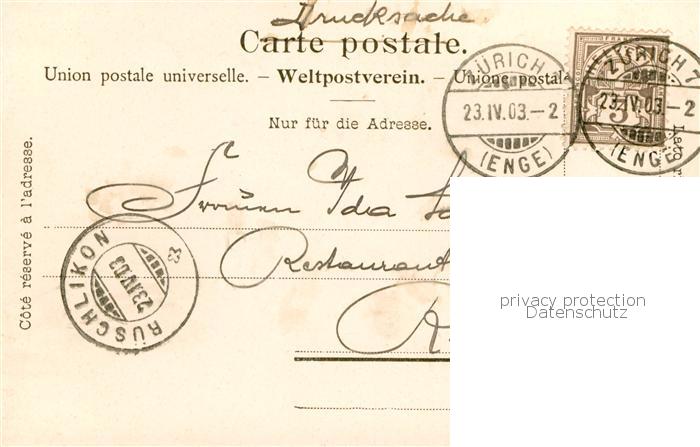 Drucksache
Carte postale.
Union postale universelle. – Weltpostverein. – Unione postale
Nur für die Adresse.
Côté réservé à l'adresse.
ZÜRICH 7
23.IV.03.–2
(ENGE)
FRANCO
5
ZÜRICH 7
23.IV.03.–2
(ENGE)
Ida
Restaurant
R
RÜSCHLIKON
23.IV.03
privacy protection
Datenschutz